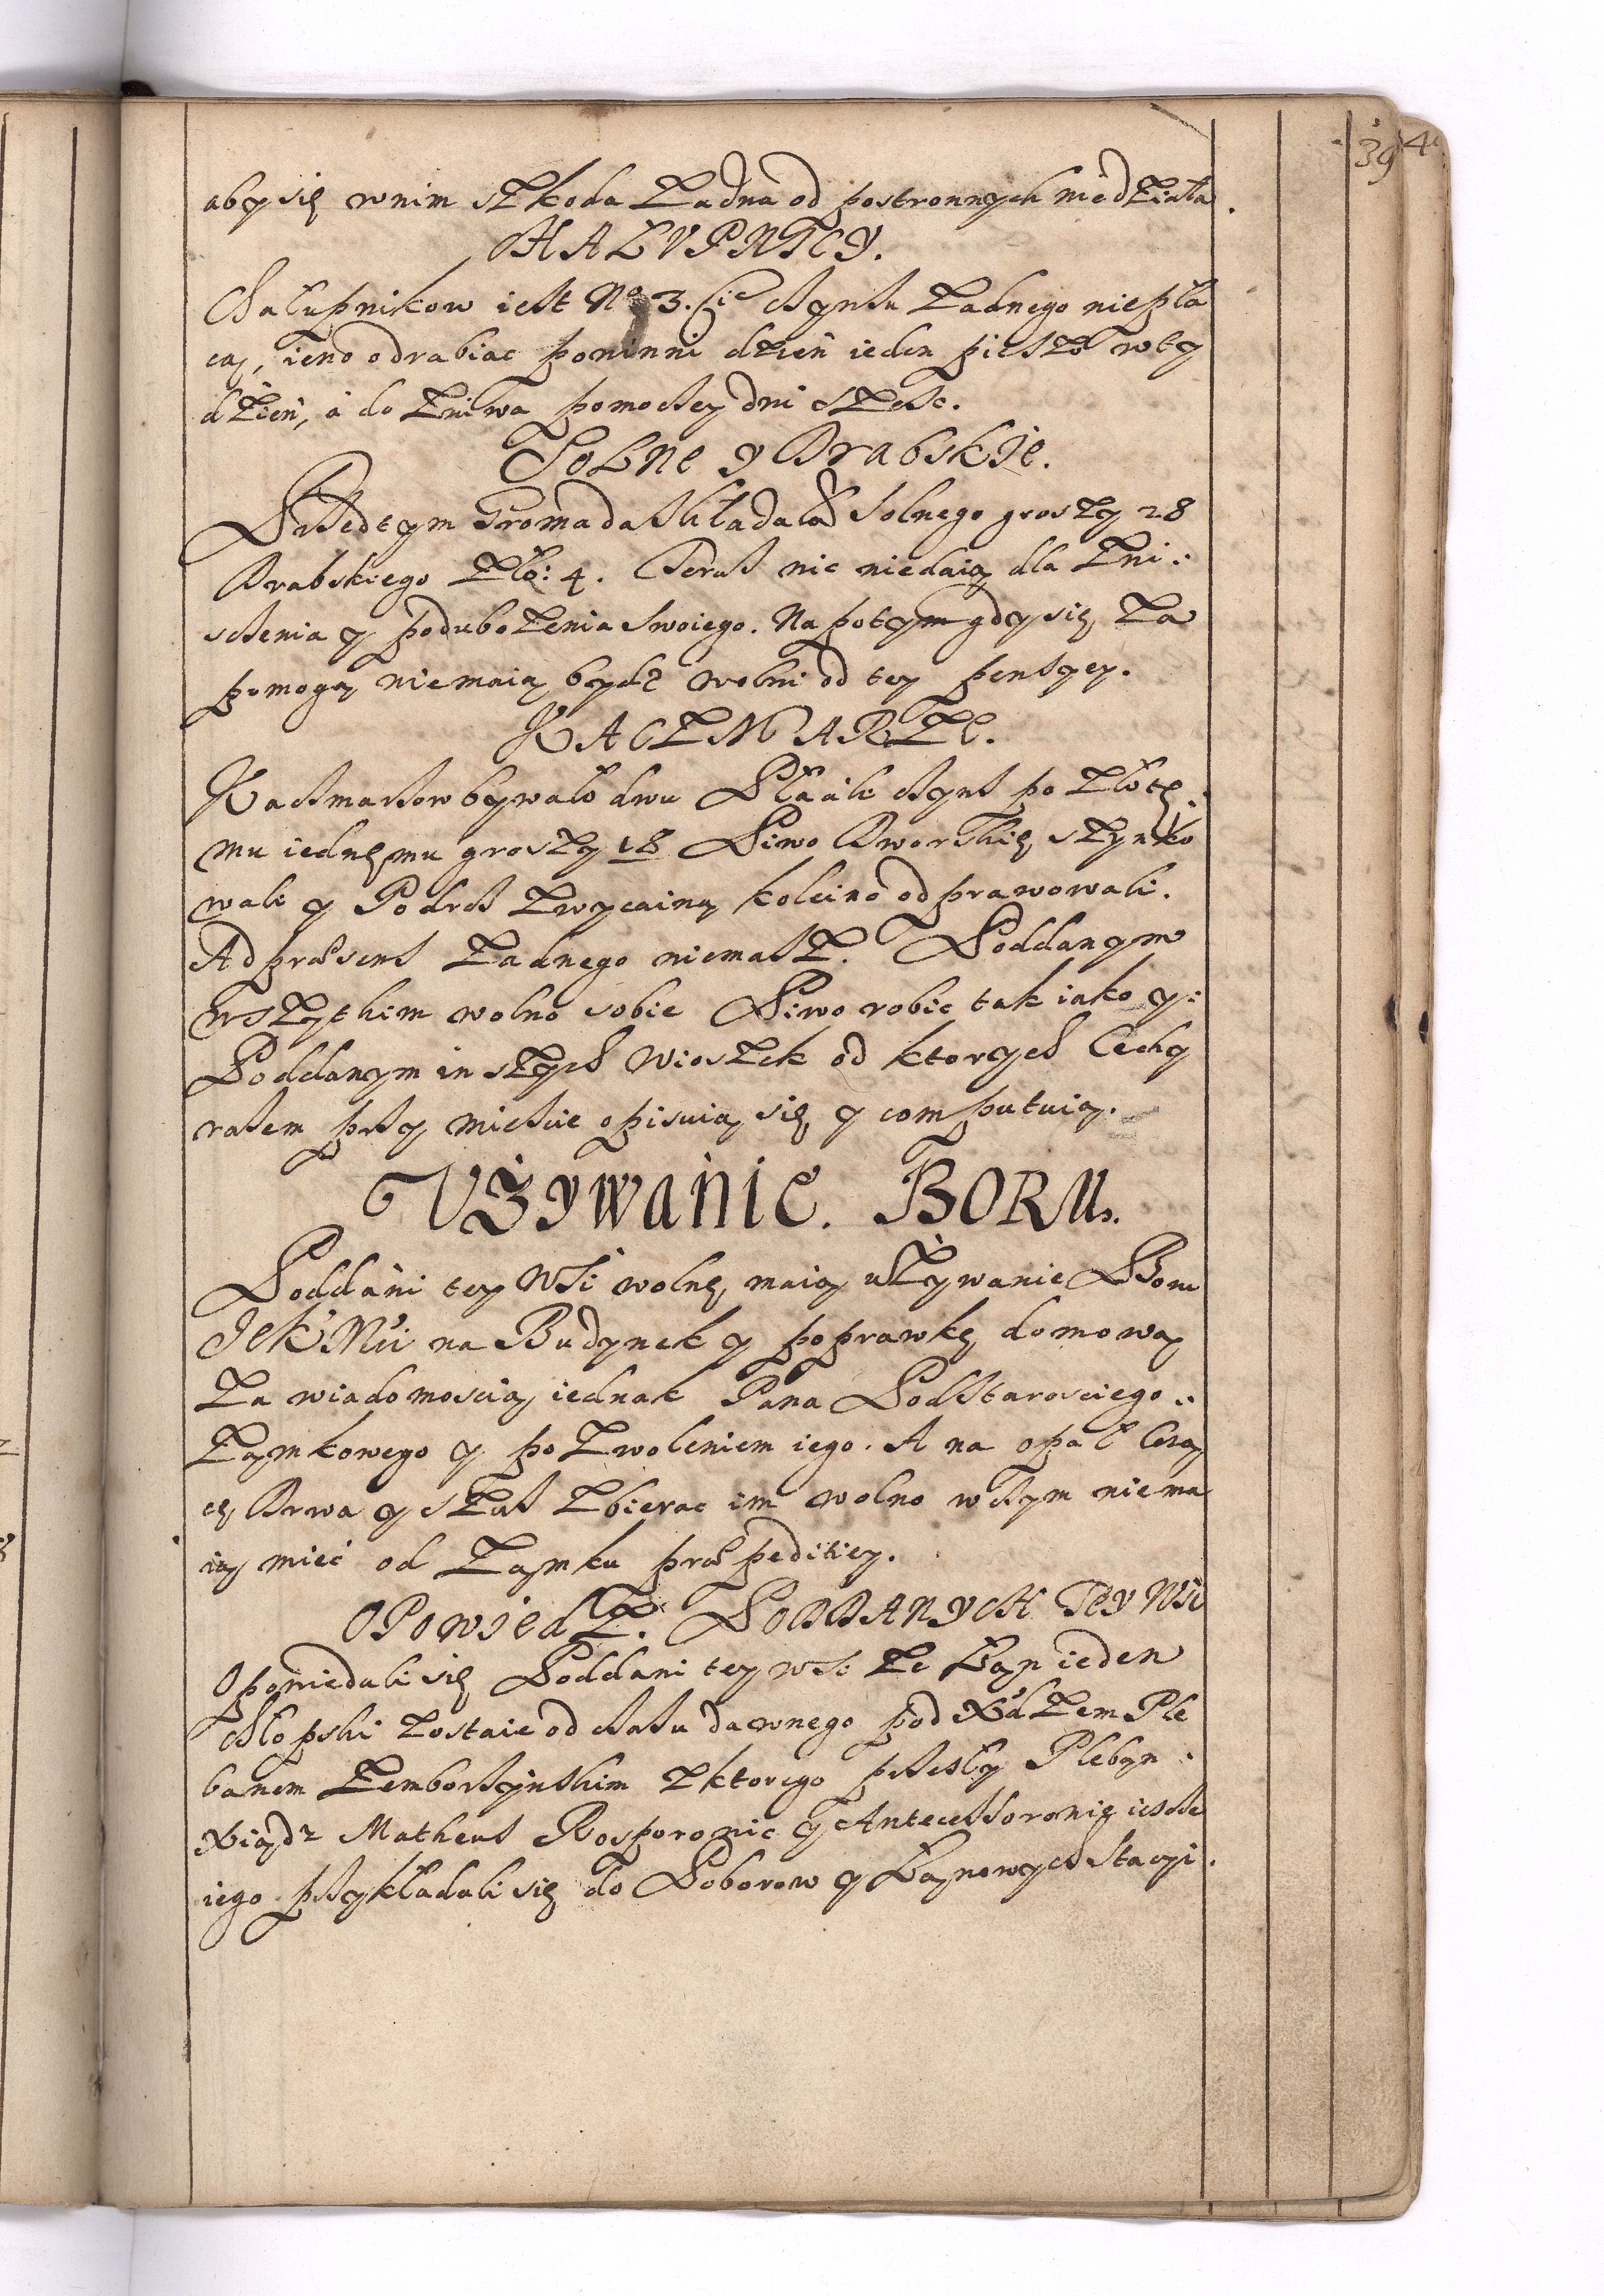 39 4
aby się wnim szkoda żadna od postronnych niedziała.
CHALUPNICY.
Chałupnikow iest No 3. Ci czynszu żadnego niepła
cą, ieno odrabiac powinni dzień ieden pieszo wty
dzień, á do żniwa pomoczey dni szesc.
SOLNE y DrabskIe.
Przedtym Gromada składała Solnego groszy 28
Drabskiego Zło: 4. Teraz nic niedaią dla Zni:
sczenia y podubożenia swoiego. Na potym gdy się za
pomogą niemaią bydz wolni od tey pensyey.
KACZMARZE.
Kaczmarzow bywało dwu Płácáli czynsz po złotę:
mu iednęmu groszy 18 Piwo Dworskię szynko
wali y Podroż zwyczainą kolcino odprawowali.
Ad præsens żadnego niemasz. Poddanym
wszytkim wolno sobie Piwo robic tak iako y:
Poddanym inszych wiosek od ktorych Cechy
razem przy miescie opisuią się y computuią.
VŻYWANIE. BORU.
Poddáni tey Wsi wolnę maią używanie Boru
JeKMci na Budynek y poprawkę domową
Za wiadomoscią iednak Pana Podstarosciego:
Zamkowego y pozwoleniem iego. A na opał Leżą
cę Drwa y susz zbierac im wolno wczym niema
ią mieć od Zamku præpeditiey.
OPOWIEDZ. PODDANYCH TEY WSI
Opowiedali się Poddani tey wsi że Łan ieden
Chłopski zostaie od czasu dawnego pod Xdzem Ple
banem Zemborzynskim z ktorego przeszly Pleban:
Xiądz Matheus y Antecessorowie iesche
iego przykładali się do Poborow y Łanowych Stacyi.